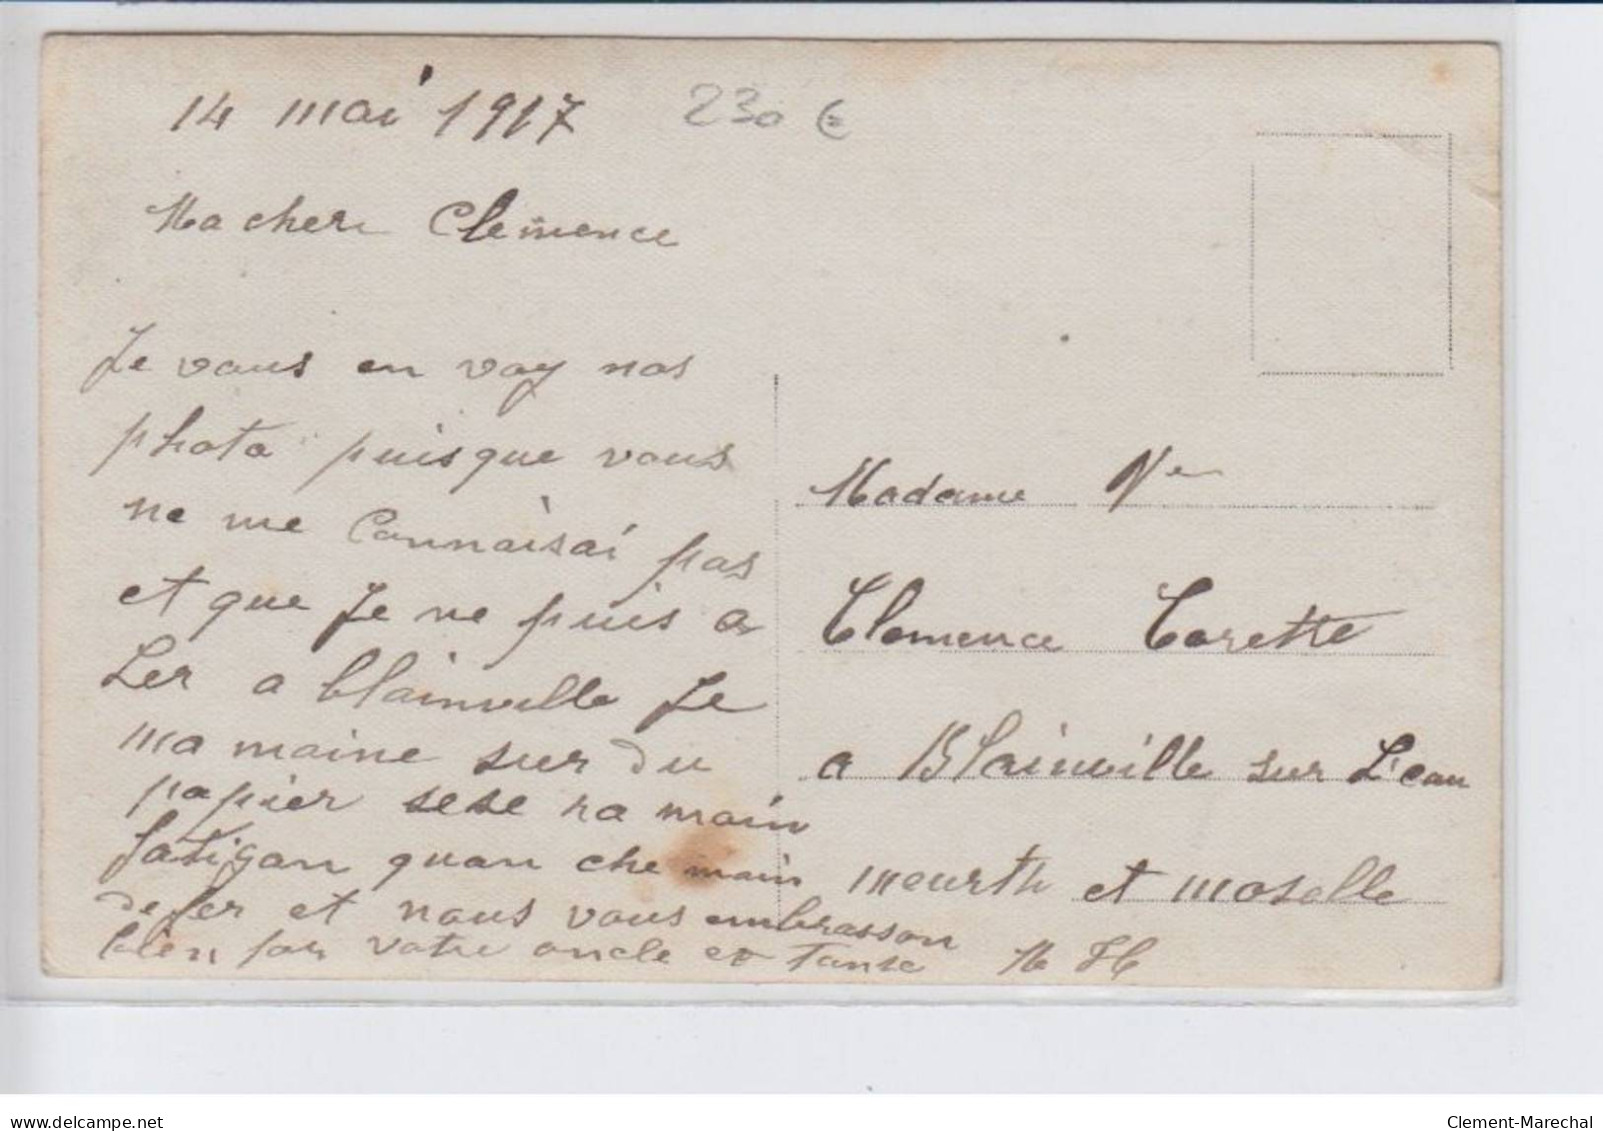 14 mai 1917 230 €
Ma cher Clemence
Je vous en voy nos
photo puisque vous
ne me Connaisai pas
et que Je ne puis a
Ler a blainville Je
ma maine sur du
papier sese ra main
fatigan quan che main
de fer et nous vous embrasson
bien for votre oncle et tante M H
Madame Ve
Clemence Corette
a Blainville sur L'eau
meurth et moselle
delcampe.net
Clement-Marechal